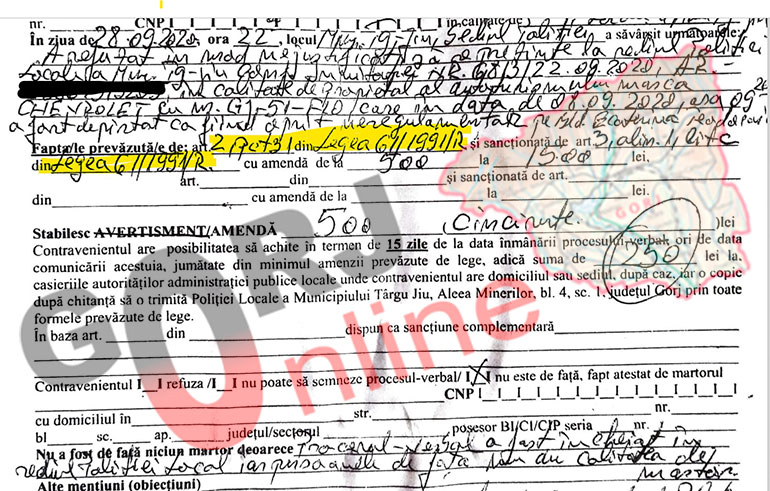 nr. CNP în calitate de
În ziua de 28.09.2020, ora 22, locul Mun. Tg-Jiu, Sediul Poliției a săvârșit următoarele:
A refuzat în mod nejustificat să se prezinte la sediul Poliției
Locale a Mun. Tg-Jiu 22.09.2020,
în calitate de proprietar al autoturismului marca
CHEVROLET cu nr. GJ-51-FLO, care în data de 09.2020, ora 09
a fost depistat ca fiind oprit neregulamentar pe Bld Ecaterina Teodoroiu
Fapta/le prevăzută/e de: art. 2 pct 31 din Legea 61/1991/R. și sancționată de art. 3, alin. 1, lit c
din Legea 61/1991/R. cu amendă de la 500 la 1500 lei.
art. din și sancționată de art.
din cu amendă de la la lei.
Stabilesc AVERTISMENT/AMENDĂ 500 (cincisute.)lei
Contravenientul are posibilitatea să achite în termen de 15 zile de la data înmânării procesului-verbal ori de data
comunicării acestuia, jumătate din minimul amenzii prevăzute de lege, adică suma de 250 lei la
casieriile autorităților administrației publice locale unde contravenientul are domiciliul sau sediul, după caz, iar o copie
după chitanță să o trimită Poliției Locale a Municipiului Târgu Jiu, Aleea Minerilor, bl. 4, sc. 1, județul Gorj prin toate
formele prevăzute de lege.
În baza art. din dispun ca sancțiune complementară
Contravenientul I_I refuza /I_I nu poate să semneze procesul-verbal/ IXI nu este de față, fapt atestat de martorul
CNP
cu domiciliul în str. nr.
bl sc. ap. județul/sectorul posesor BI/CI/CIP seria nr.
Nu a fost de față niciun martor deoarece Procesul-verbal a fost încheiat în
sediul Poliției Local iar persoanele de față nu au calitatea de
martor.
Alte mențiuni (obiecțiuni)
GORJ
Online
GORJ